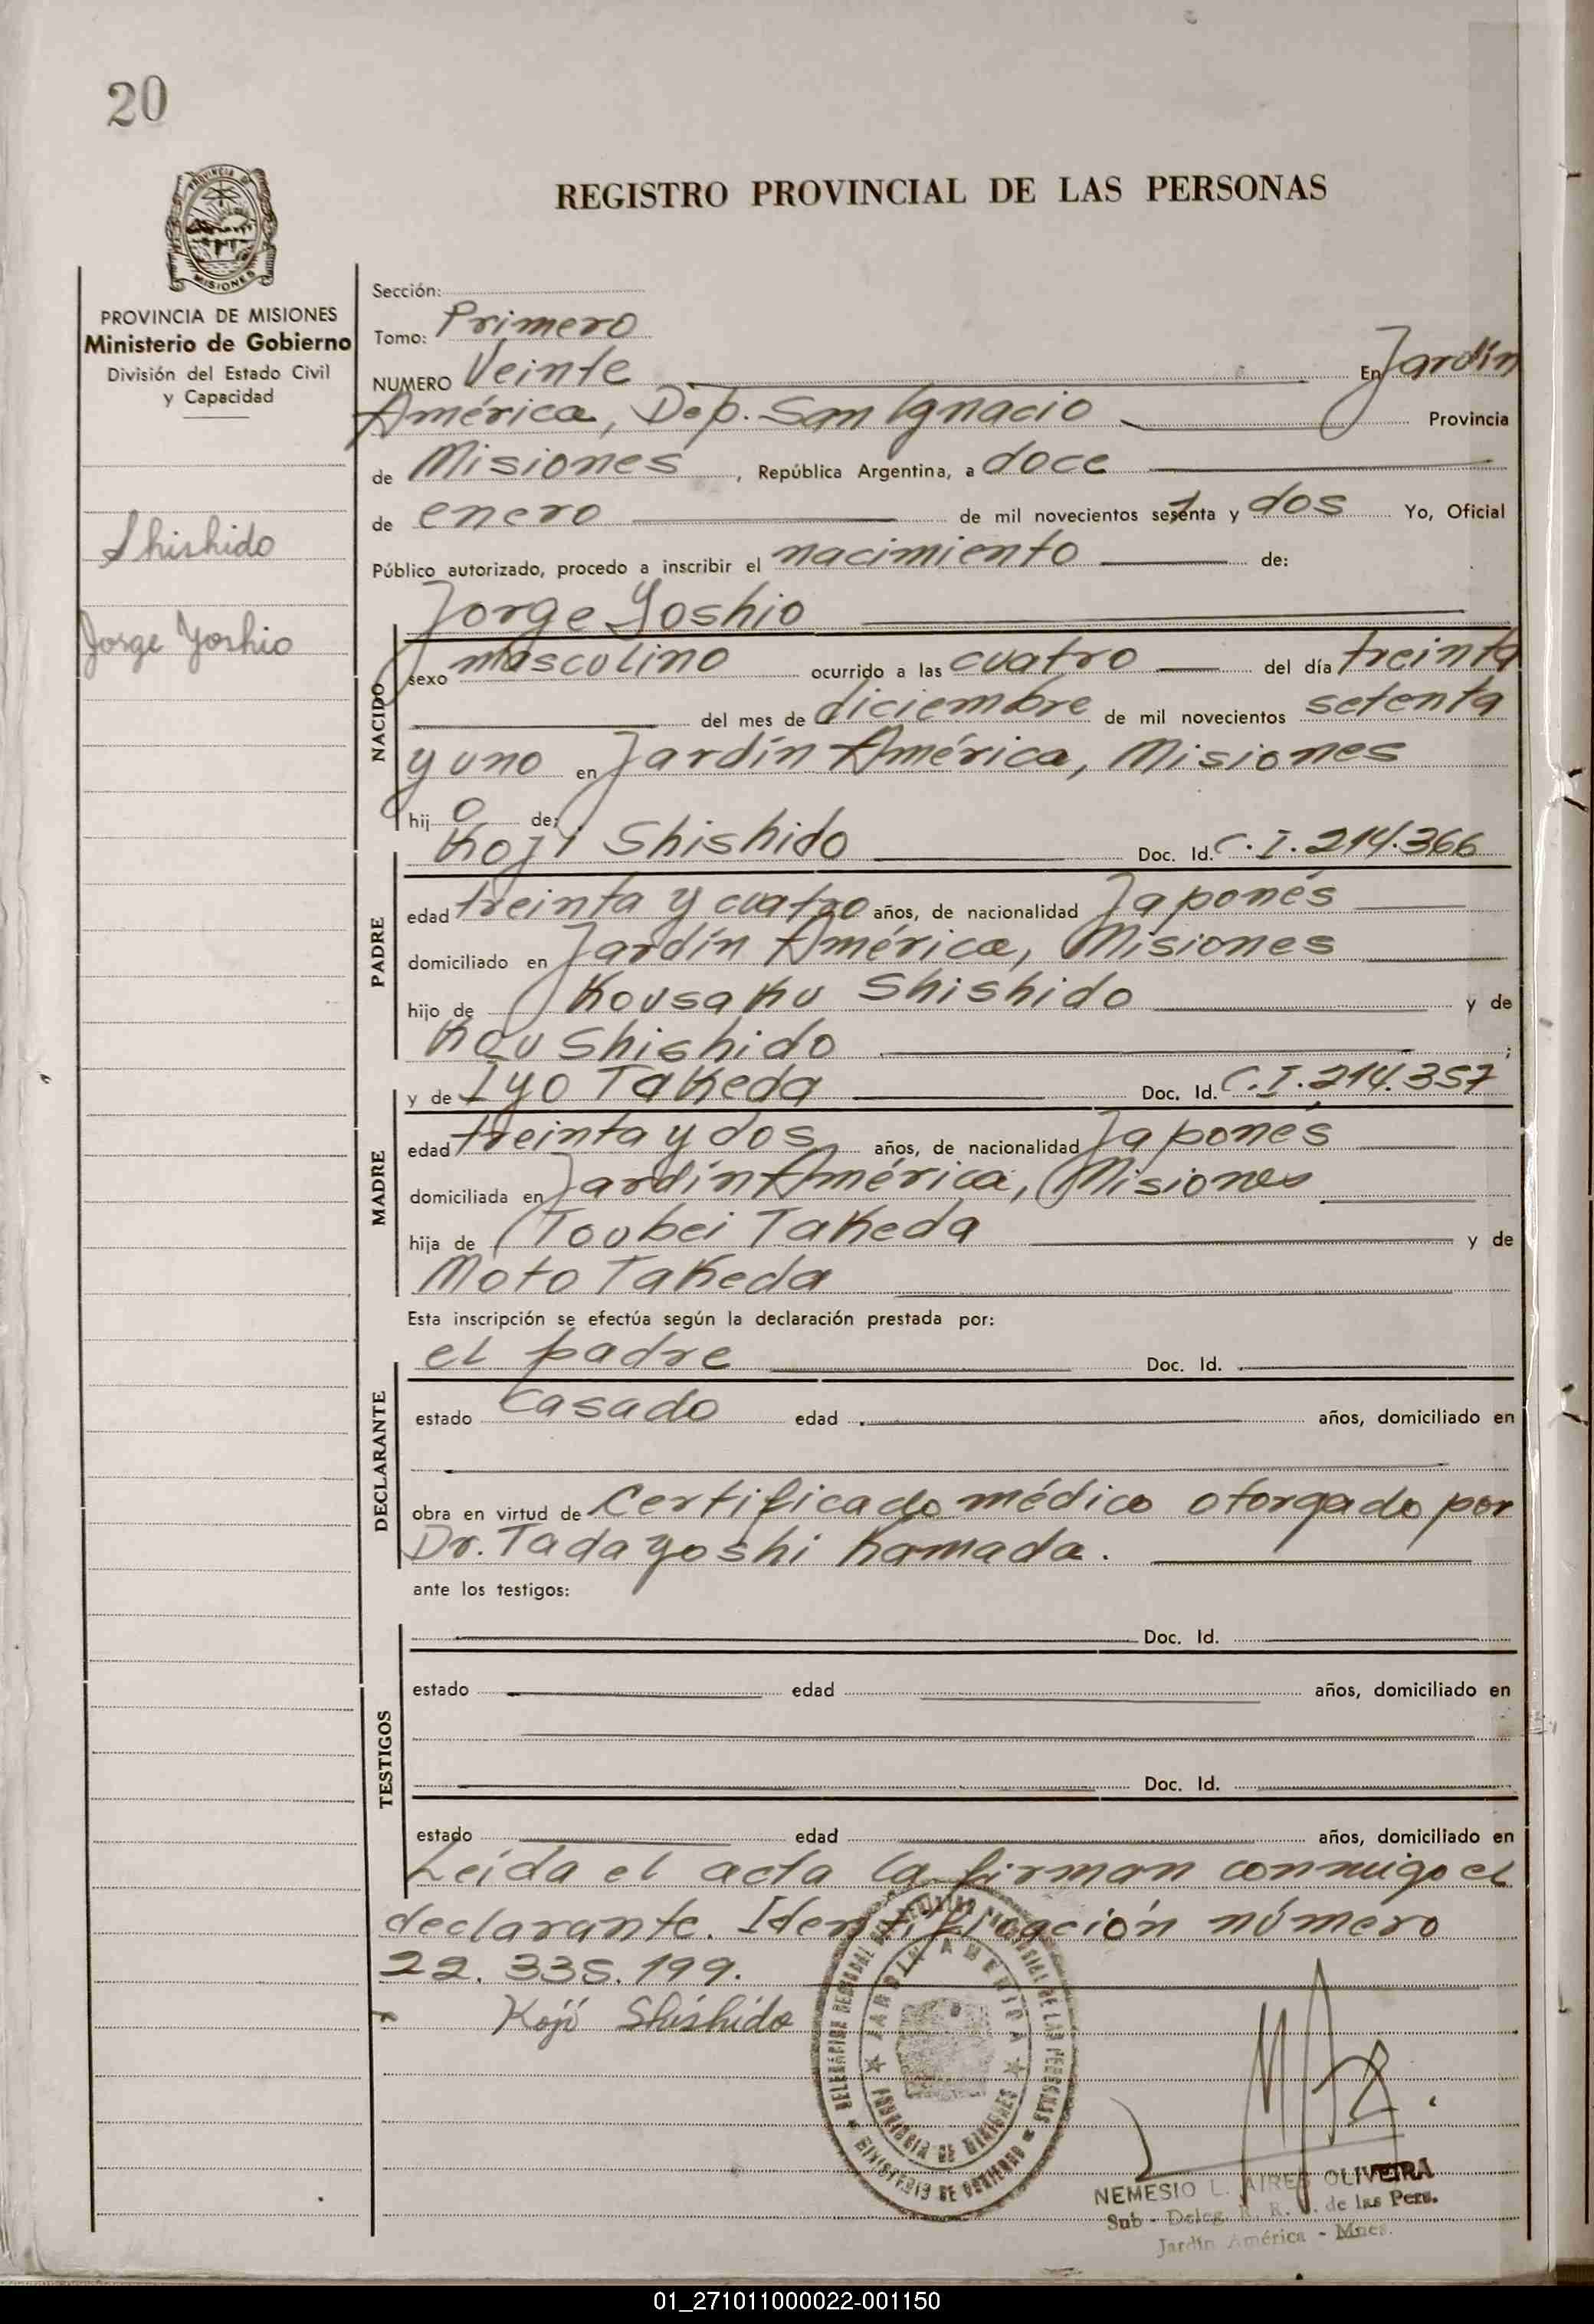 20
REGISTRO PROVINCIAL DE LAS PERSONAS
PROVINCIA
MISIONES
PROVINCIA DE MISIONES
Ministerio de Gobierno
División del Estado Civil
y Capacidad
Shishido
Jorge Yoshio
Sección:
Tomo: Primero
NUMERO Veinte En Jardín
América, Dep. San Ignacio Provincia
de Misiones, República Argentina, a doce
de enero de mil novecientos setenta y dos Yo, Oficial
Público autorizado, procedo a inscribir el nacimiento de:
Jorge Yoshio
NACIDO
sexo masculino ocurrido a las cuatro del día treinta
del mes de diciembre de mil novecientos setenta
y uno en Jardín América, Misiones
hijo de:
Koji Shishido Doc. Id. C.I. 214.366
PADRE
edad treinta y cuatro años, de nacionalidad Japonés
domiciliado en Jardín América, Misiones
hijo de Kousaku Shishido y de
Kou Shishido;
y de Iyo Takeda Doc. Id. C.I. 214.357
MADRE
edad treinta y dos años, de nacionalidad Japonés
domiciliada en Jardín América, Misiones
hija de Toubei Takeda y de
Moto Takeda
Esta inscripción se efectúa según la declaración prestada por:
el padre Doc. Id.
DECLARANTE
estado casado edad años, domiciliado en
obra en virtud de Certificado médico otorgado por
Dr. Tadayoshi Kamada.
ante los testigos:
TESTIGOS
Doc. Id.
estado edad años, domiciliado en
Doc. Id.
estado edad años, domiciliado en
Leída el acta la firman conmigo el
declarante. Identificación número
22.335.199.
Koji Shishido
DELEGACION REGIONAL DEL REGISTRO PROVINCIAL DE LAS PERSONAS
MINISTERIO DE GOBIERNO
JARDIN AMERICA
PROVINCIA DE MISIONES
NEMESIO L. AIRES OLIVEIRA
Sub - Deleg. R. R. P. de las Pers.
Jardín América - Mnes.
01_271011000022-001150